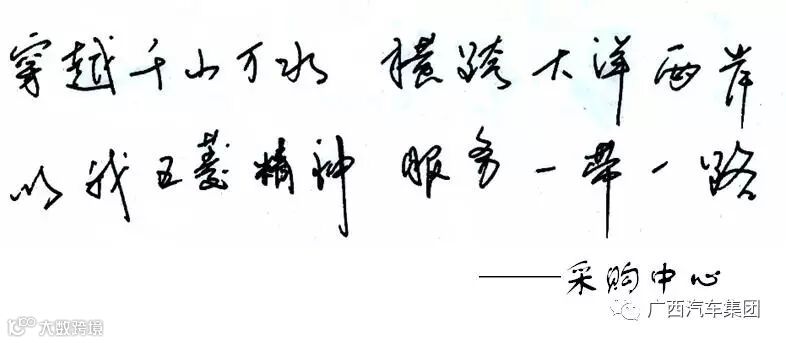 穿越千山万水 横跨大洋两岸
以我五菱精神 服务一带一路
——采购中心
广西汽车集团
大数跨境